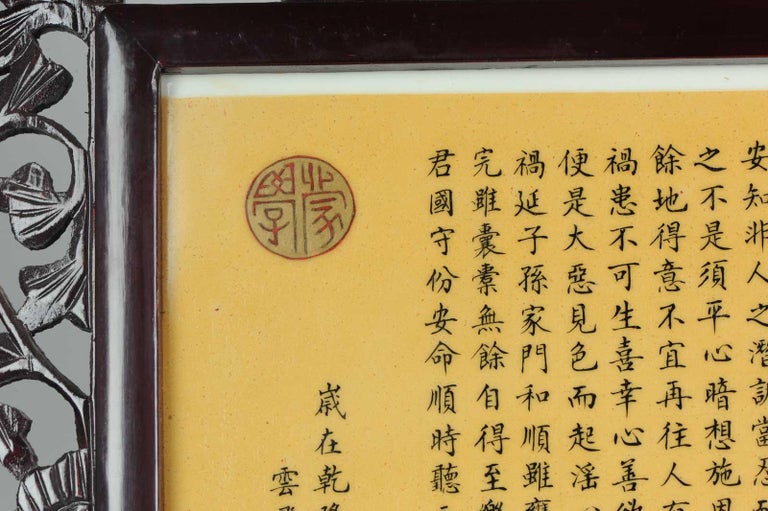 安知非人之潛訴當忍
之不是須平心暗想施恩
餘地得意不宜再往人有
禍患不可生喜幸心善欲
便是大惡見色而起淫
禍延子孫家門和順雖
完雖囊橐無餘自得至樂
君國守份安命順時聽
歲在乾隆
雲
蒙學